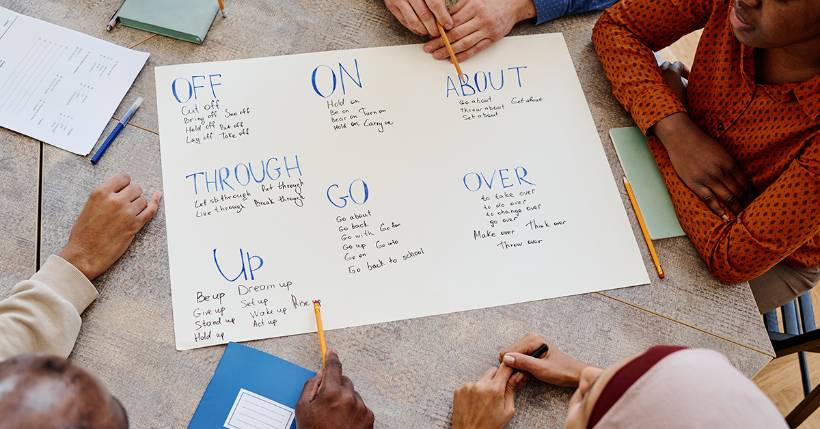 OFF
Cut off
Bring off See off
Hold off Put off
Lay off Take off
ON
Hold on
Be on Turn on
Bear on
Hold on Carry on
ABOUT
Go about Get about
Throw about
Set about
THROUGH
Let sb through Put through
Live through Break through
GO
Go about
Go back
Go with Go for
Go up Go into
Go on
Go back to school
OVER
to take over
to do over
to change over
go over
Make over Think over
Throw over
UP
Be up Dream up
Give up Set up Rise
Stand up Wake up
Hold up Act up